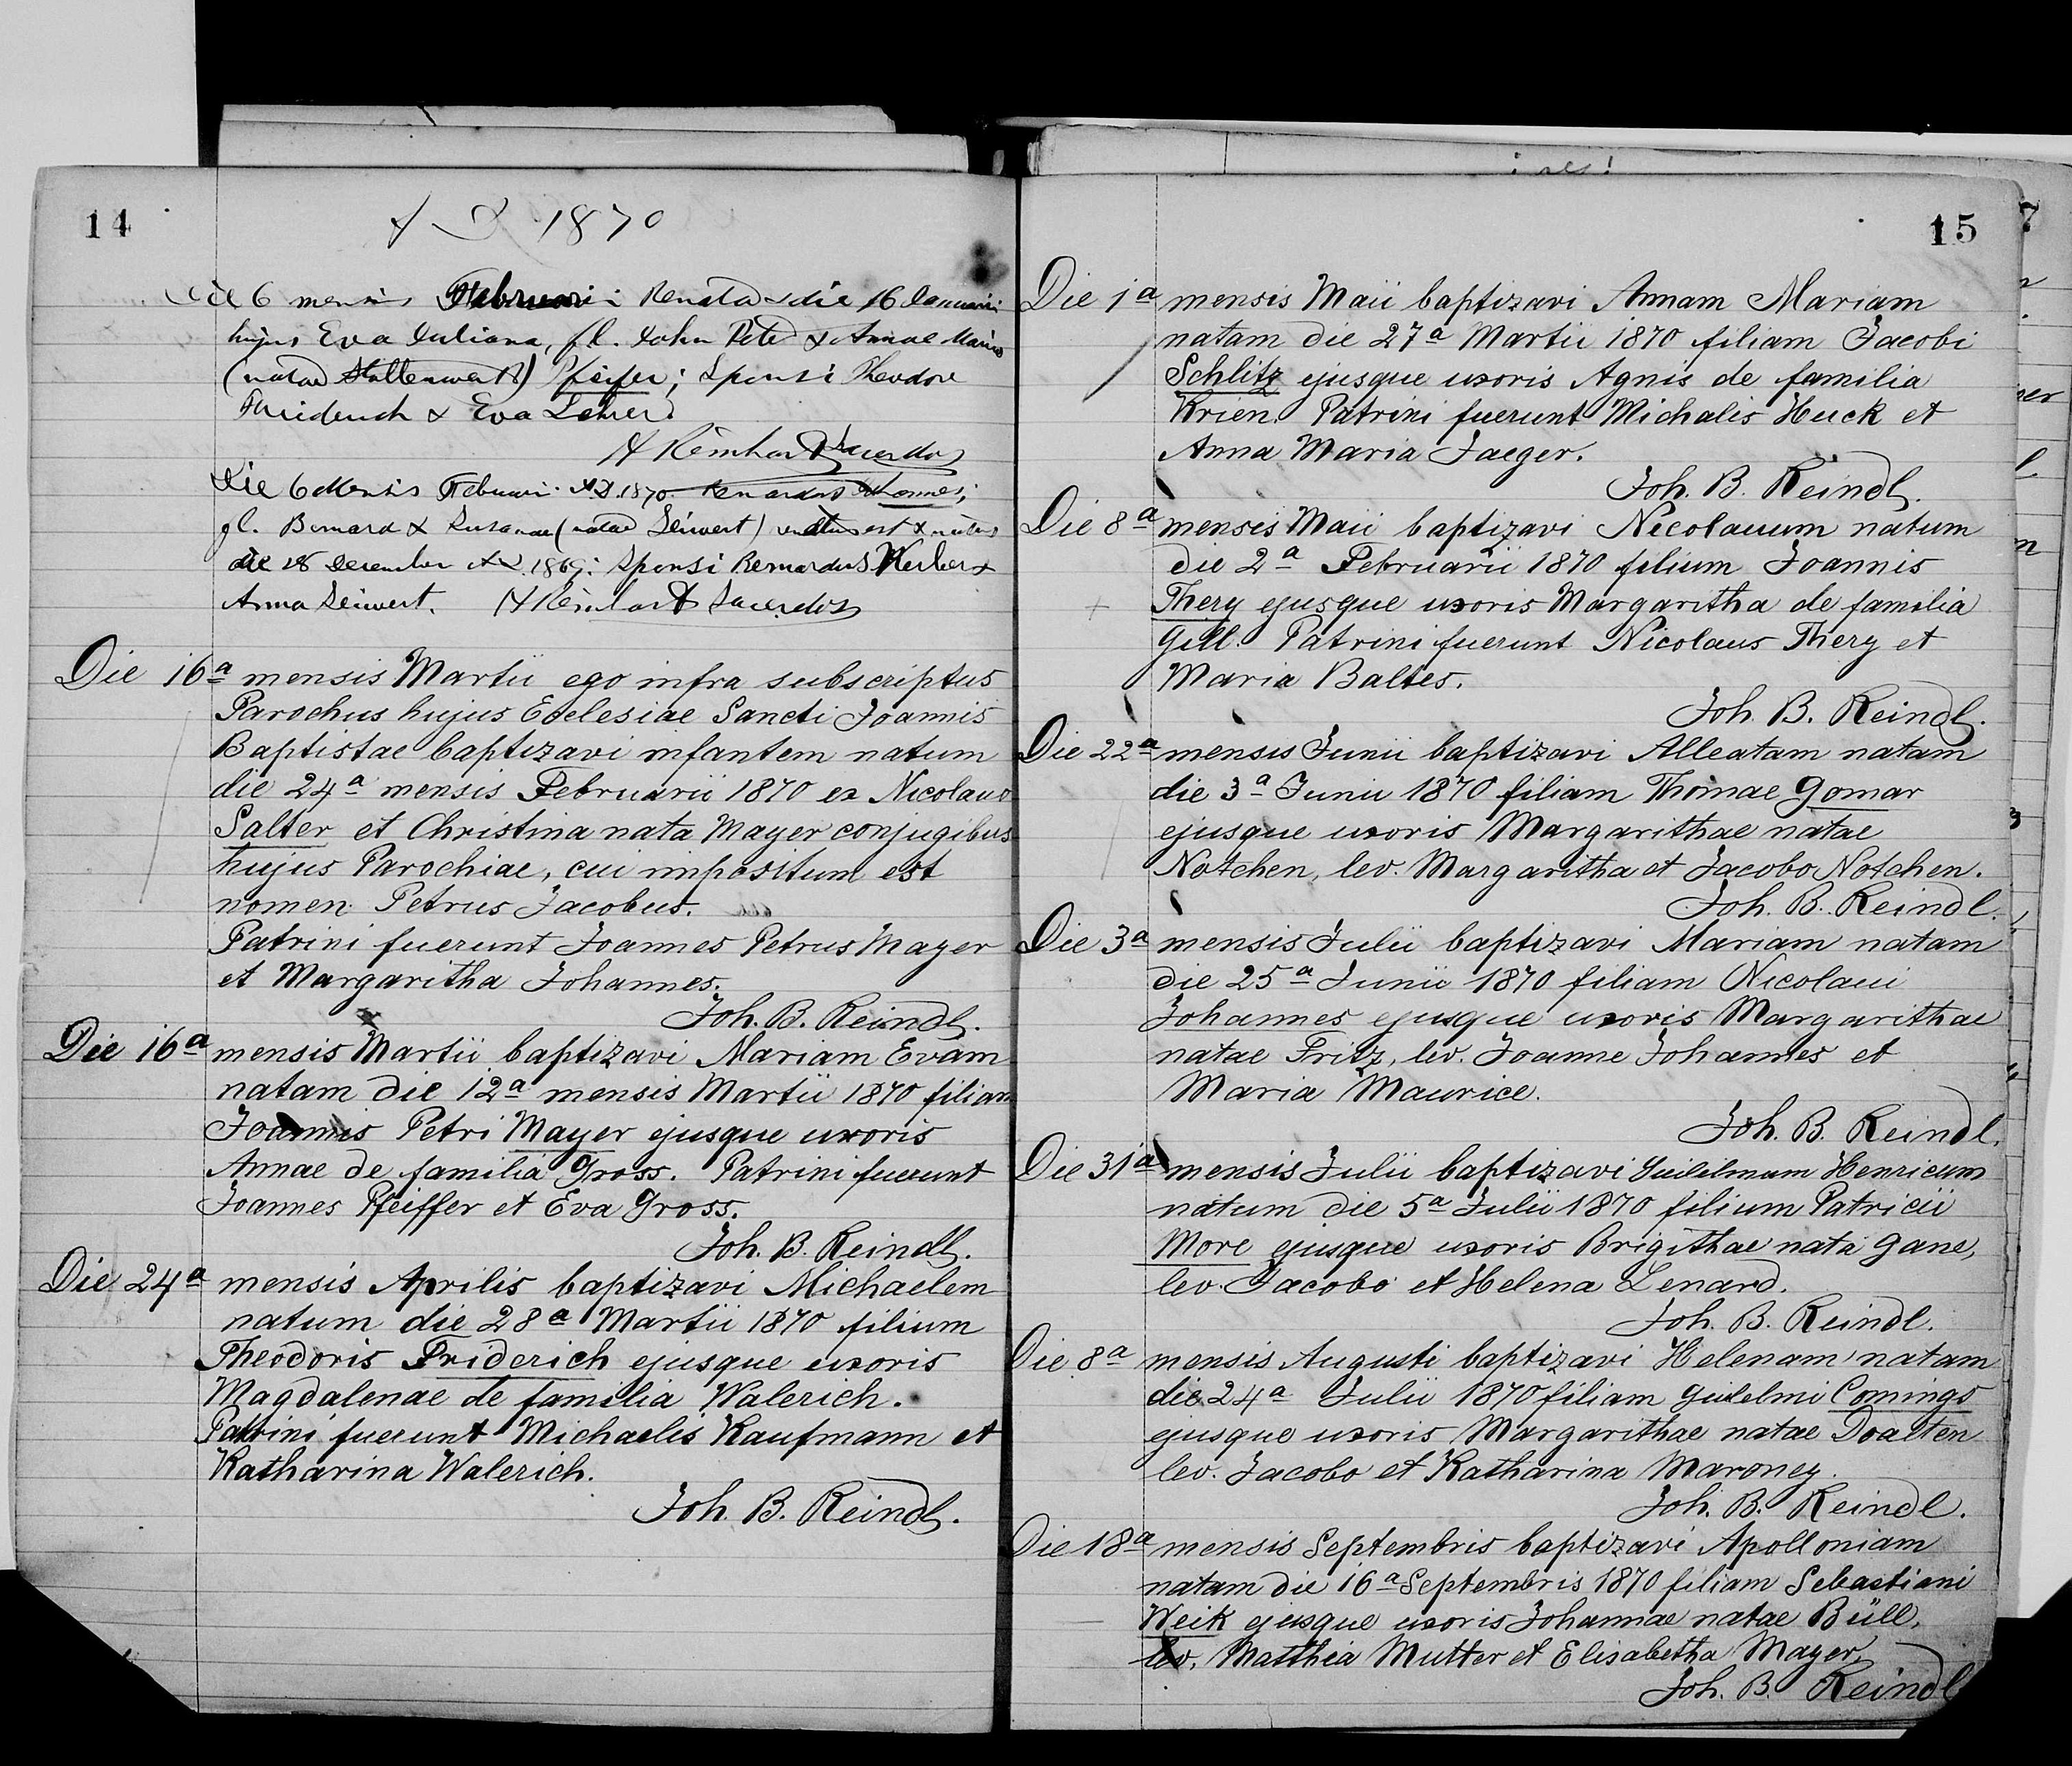 14
A D 1870
Die 6 mensis Februarii Renata die 16 Januarii
hujus Eva Juliana, fl. John Pete & Annae Maria
(natae Hattenwert) Pfeifer; Sponsi Theodore
Friderich & Eva Lehrer
H Reinhart Sacerdos
Die 6 Mensis Februari A.D. 1870 Bernardus Johannes;
fl. Bernard & Susannae (natae Seiwert) est & natus
die 28 December A.D. 1869: Sponsi Bernardus Werber &
Anna Seiwert. H Reinhart Sacerdos
Die 16a mensis Martii ego infra subscriptus
Parochus hujus Ecclesiae Sancti Joannis
Baptistae baptizavi infantem natum
die 24a mensis Februarii 1870 ex Nicolauo
Salter et Christina nata Mayer conjugibus
hujus Parochiae, cui impositum est
nomen Petrus Jacobus.
Patrini fuerunt Joannes Petrus Mayer
et Margaritha Johannes.
Joh. B. Reindl.
Die 16a mensis Martii baptizavi Mariam Evam
natam die 12a mensis Martii 1870 filiam
Joannis Petri Mayer ejusque uxoris
Annae de familia Gross. Patrini fuerunt
Joannes Pfeiffer et Eva Gross.
Joh. B. Reindl.
Die 24a mensis Aprilis baptizavi Michaelem
natum die 28a Martii 1870 filium
Theodoris Friderich ejusque uxoris
Magdalenae de familia Walerich.
Patrini fuerunt Michaelis Kaufmann et
Katharina Walerich.
Joh. B. Reindl.
15
Die 1a mensis Maii baptizavi Annam Mariam
natam die 27a Martii 1870 filiam Jacobi
Schlitz ejusque uxoris Agnis de familia
Krien. Patrini fuerunt Michalis Huck et
Anna Maria Jaeger.
Joh. B. Reindl.
Die 8a mensis Maii baptizavi Nicolauum natum
die 2a Februarii 1870 filium Joannis
Thery ejusque uxoris Margaritha de familia
Gill. Patrini fuerunt Nicolaus Thery et
Maria Baltes.
Joh. B. Reindl.
Die 22a mensis Junii baptizavi Alleatam natam
die 3a Junii 1870 filiam Thomae Gomar
ejusque uxoris Margarithae natae
Notchen, lev. Margaritha et Jacobo Notchen.
Joh. B. Reindl.
Die 3a mensis Julii baptizavi Mariam natam
die 25a Junii 1870 filiam Nicolaui
Johannes ejusque uxoris Margarithae
natae Fritz, lev. Joanne Johannes et
Maria Maurice.
Joh. B. Reindl.
Die 31a mensis Julii baptizavi Guilelmum Henricum
natum die 5a Julii 1870 filium Patricii
More ejusque uxoris Brigithae nata Gane,
lev. Jacobo et Helena Lenard.
Joh. B. Reindl.
Die 8a mensis Augusti baptizavi Helenam natam
die 24a Julii 1870 filiam Guilelmi Comings
ejusque uxoris Margarithae natae Doalten
lev. Jacobo et Katharina Maroney.
Joh. B. Reindl.
Die 18a mensis Septembris baptizavi Apolloniam
natam die 16a Septembris 1870 filiam Sebastiani
Weik ejusque uxoris Johannae natae Büll,
lev. Matthia Mutter et Elisabetha Mayer.
Joh. B. Reindl